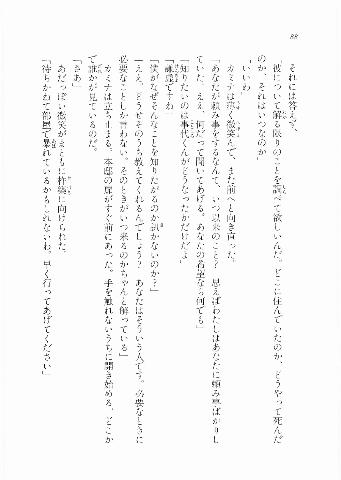 88
それには答えず、
「彼について解る限りのことを調べて欲しいんだ。どこに住んでいたのか、どうやって死んだ
のか、それはいつなのか」
「いいわ」
カミナは薄く微笑んで、また前へと向き直った。
「あなたが頼み事をするなんて、いつ以来のこと？　思えばわたしはあなたに頼み事ばかりし
ていた。ええ、何だって聞いてあげる。あなたの希望なら何でも」
「知りたいのは事代くんがどうなったかだけだよ」
「謙虚ですね」
「僕がなぜそんなことを知りたがるのか訊かないのか？」
「ええ、どうせそのうち教えてくれるんでしょう？　あなたはそういう人です。必要なときに
必要なことしか言わない。そのときがいつ来るのかちゃんと解っている」
カミナは立ち止まる。本邸の扉がすぐ前にあった。手を触れないうちに開き始める。どこか
で誰かが見ているのだ。
「さあ」
あだっぽい微笑がまともに杵築に向けられた。
「待ちかねて部屋で暴れているかもしれないわ。早く行ってあげてください」